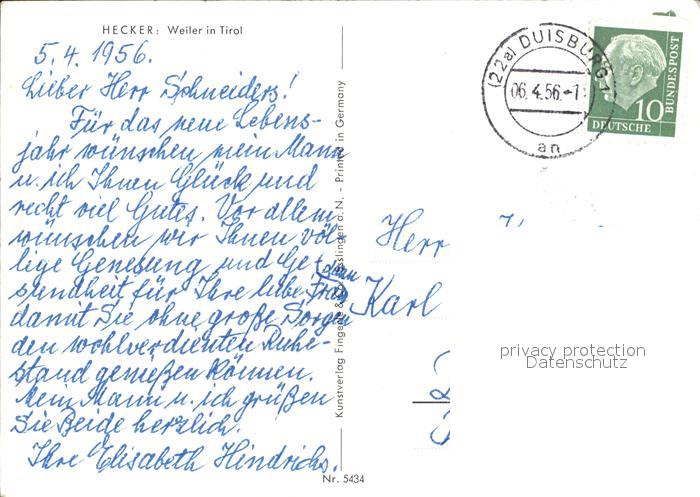 HECKER: Weiler in Tirol
5.4.1956.
Lieber Herr Schneiders!
Für das neue Lebens-
jahr wünschen mein Mann
u. ich Ihnen Glück und
recht viel Gutes. Vor allem
wünschen wir Ihnen völ-
lige Genesung und Ge-
sundheit für Ihre liebe Frau
damit Sie ohne große Sorgen
den wohlverdienten Ruhe-
stand genießen können.
Mein Mann u. ich grüßen
Sie Beide herzlich.
Ihre Elisabeth Hindrichs.
Nr. 5434
Kunstverlag Esslingen a. N. - Printed in Germany
(22a) DUISBURG
06.4.56.-1
an
10
DEUTSCHE
BUNDESPOST
Herr
Karl
privacy protection
Datenschutz